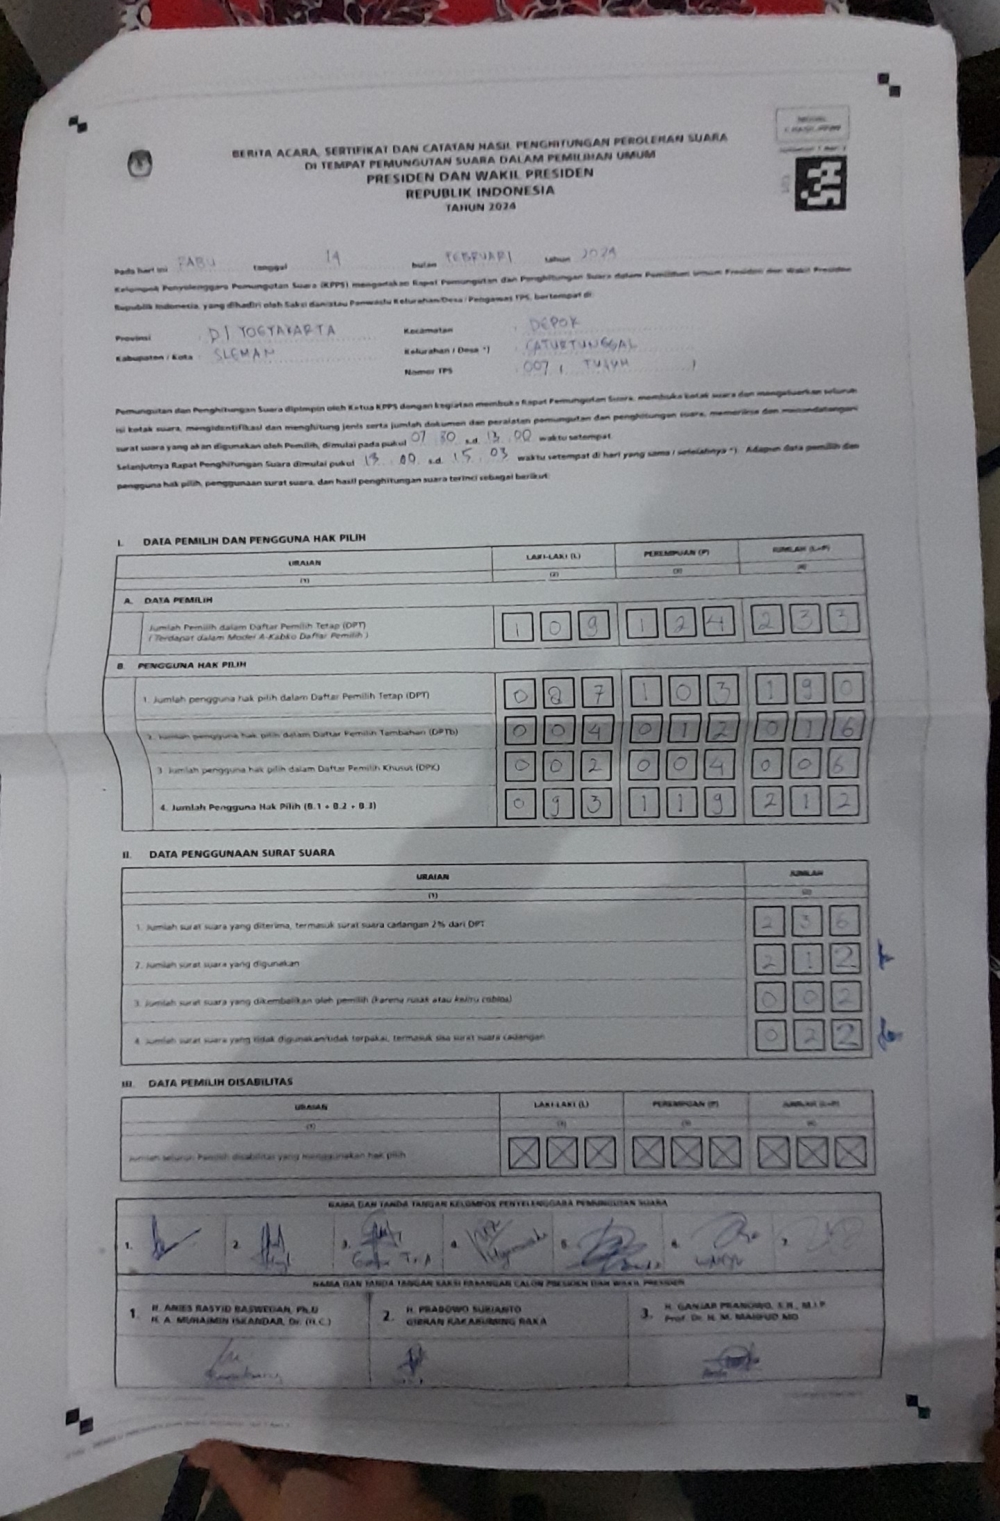 BERITA ACARA, SERTIFIKAT DAN CATATAN HASIL PENGHITUNGAN PEROLEHAN SUARA
DI TEMPAT PEMUNGUTAN SUARA DALAM PEMILIHAN UMUM
PRESIDEN DAN WAKIL PRESIDEN
REPUBLIK INDONESIA
TAHUN 2024
Pada hari ini RABU tanggal 14 bulan FEBRUARI tahun 2024
Kelompok Penyelenggara Pemungutan Suara (KPPS) mengadakan Rapat Pemungutan dan Penghitungan Suara dalam Pemilihan Umum Presiden dan Wakil Presiden
Republik Indonesia, yang dihadiri oleh Saksi dan/atau Panwaslu Kelurahan/Desa / Pengawas TPS, bertempat di:
Provinsi : DI YOGYAKARTA Kecamatan : DEPOK
Kabupaten / Kota : SLEMAN Kelurahan / Desa *) : CATURTUNGGAL
Nomor TPS : 007 ( TUJUH )
Pemungutan dan Penghitungan Suara dipimpin oleh Ketua KPPS dengan kegiatan membuka Rapat Pemungutan Suara, membuka kotak suara dan mengeluarkan seluruh
isi kotak suara, mengidentifikasi dan menghitung jenis serta jumlah dokumen dan peralatan pemungutan dan penghitungan suara, memeriksa dan menandatangani
surat suara yang akan digunakan oleh Pemilih, dimulai pada pukul 07.30 s.d. 13.00 waktu setempat.
Selanjutnya Rapat Penghitungan Suara dimulai pukul 13.00 s.d. 15.03 waktu setempat di hari yang sama / setelahnya *). Adapun data pemilih dan
pengguna hak pilih, penggunaan surat suara, dan hasil penghitungan suara terinci sebagai berikut:
I. DATA PEMILIH DAN PENGGUNA HAK PILIH
URAIAN LAKI-LAKI (L) PEREMPUAN (P) JUMLAH (L+P)
(1) (2) (3) (4)
A. DATA PEMILIH
Jumlah Pemilih dalam Daftar Pemilih Tetap (DPT) 1 0 9 1 2 4 2 3 3
(Terdapat dalam Model A-Kabko Daftar Pemilih)
B. PENGGUNA HAK PILIH
1. Jumlah pengguna hak pilih dalam Daftar Pemilih Tetap (DPT) 0 8 7 1 0 3 1 9 0
2. Jumlah pengguna hak pilih dalam Daftar Pemilih Tambahan (DPTb) 0 0 4 0 1 2 0 1 6
3. Jumlah pengguna hak pilih dalam Daftar Pemilih Khusus (DPK) 0 0 2 0 0 4 0 0 6
4. Jumlah Pengguna Hak Pilih (B.1 + B.2 + B.3) 0 9 3 1 1 9 2 1 2
II. DATA PENGGUNAAN SURAT SUARA
URAIAN JUMLAH
(1) (2)
1. Jumlah surat suara yang diterima, termasuk surat suara cadangan 2% dari DPT 2 3 6
2. Jumlah surat suara yang digunakan 2 1 2
3. Jumlah surat suara yang dikembalikan oleh pemilih (karena rusak atau keliru coblos) 0 0 2
4. Jumlah surat suara yang tidak digunakan/tidak terpakai, termasuk sisa surat suara cadangan 0 2 2
III. DATA PEMILIH DISABILITAS
URAIAN LAKI-LAKI (L) PEREMPUAN (P) JUMLAH (L+P)
(1) (2) (3) (4)
Jumlah seluruh Pemilih disabilitas yang menggunakan hak pilih X X X X X X X X X
NAMA DAN TANDA TANGAN KELOMPOK PENYELENGGARA PEMUNGUTAN SUARA
1. 2. 3. 4. 5. 6. WAHYU 7.
NAMA DAN TANDA TANGAN SAKSI PASANGAN CALON PRESIDEN DAN WAKIL PRESIDEN
1. H. ANIES RASYID BASWEDAN, Ph.D 2. H. PRABOWO SUBIANTO 3. H. GANJAR PRANOWO, S.H., M.I.P
H. A. MUHAIMIN ISKANDAR, Dr. (H.C.) GIBRAN RAKABUMING RAKA Prof. Dr. H. M. MAHFUD MD